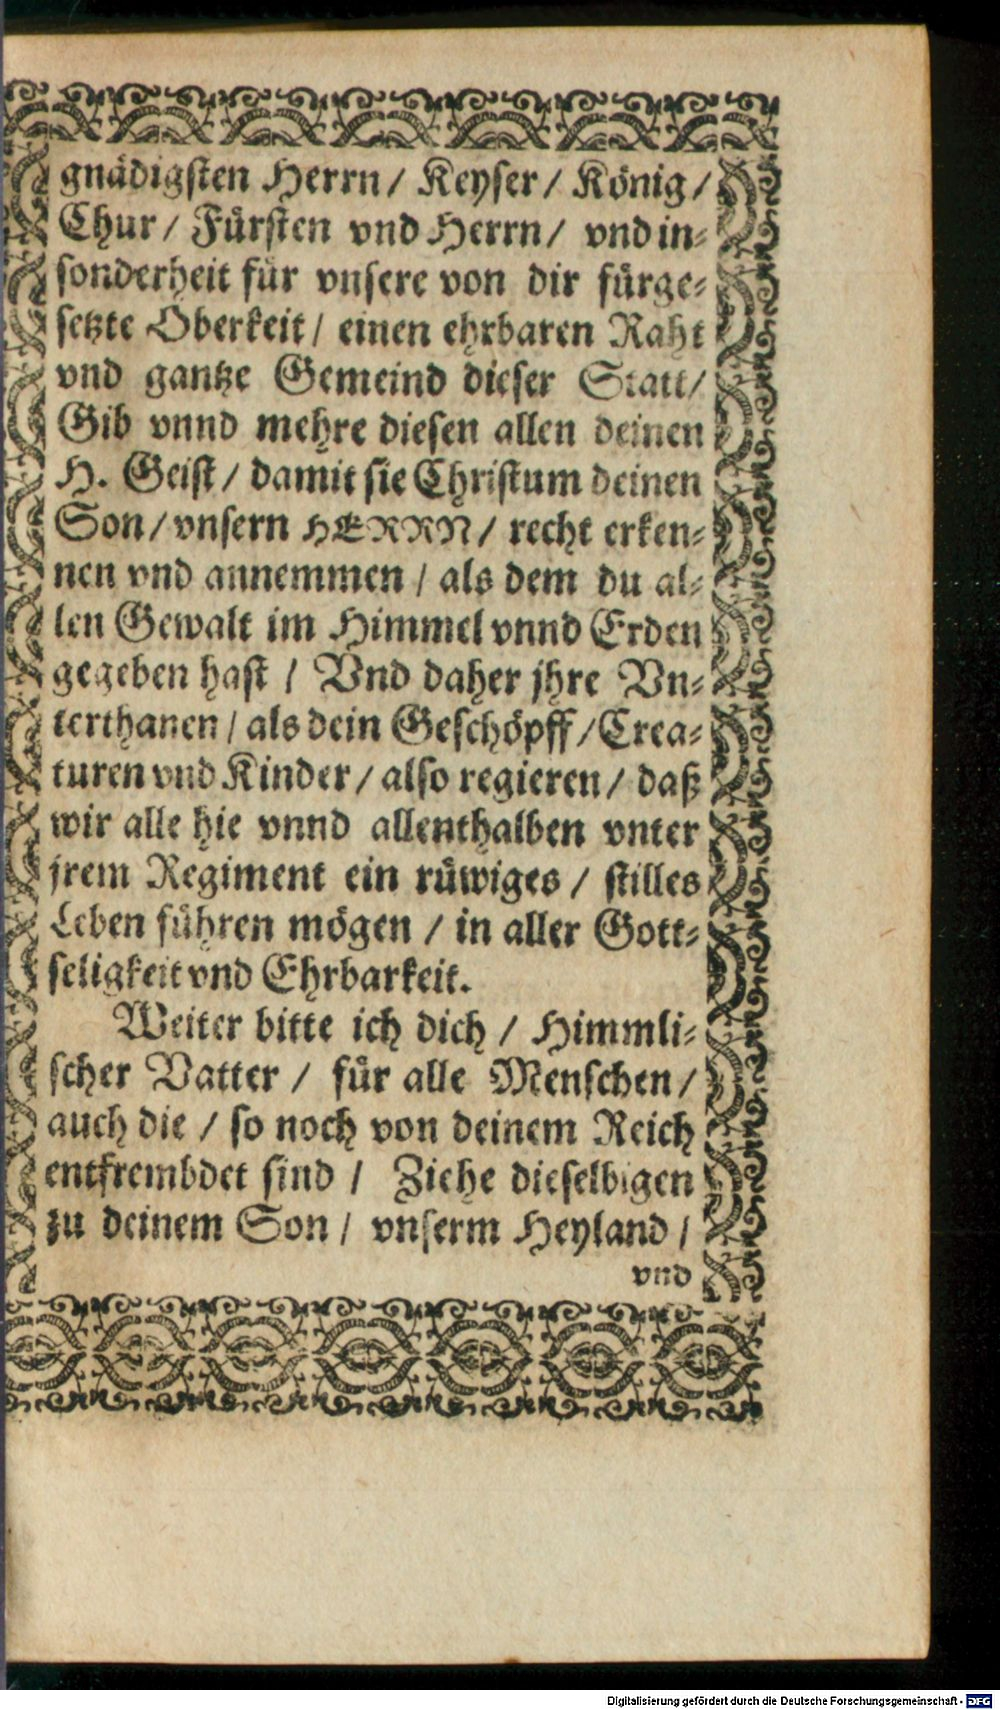 gnådigsten Herrn/ Keyser/ König/
Chur/ Fürsten vnd Herrn/ vnd in⸗
sonderheit für vnsere von dir fürge⸗
setzte Oberkeit/ einen ehrbaren Raht
vnd gantze Gemeind dieser Statt/
Gib vnnd mehre diesen allen deinen
H. Geist/ damit sie Christum deinen
Son/ vnsern HERRN/ recht erken⸗
nen vnd annemmen/ als dem du al⸗
len Gewalt im Himmel vnnd Erden
gegeben hast/ Vnd daher jhre Vn⸗
terthanen/ als dein Geschöpff/ Crea⸗
turen vnd Kinder/ also regieren/ daß
wir alle hie vnnd allenthalben vnter
jrem Regiment ein rüwiges/ stilles
Leben führen mögen/ in aller Gott⸗
seligkeit vnd Ehrbarkeit.
Weiter bitte ich dich/ Himmli⸗
scher Vatter/ für alle Menschen/
auch die/ so noch von deinem Reich
entfrembdet sind/ Ziehe dieselbigen
zu deinem Son/ vnserm Heyland/
vnd
Digitalisierung gefördert durch die Deutsche Forschungsgemeinschaft - DFG